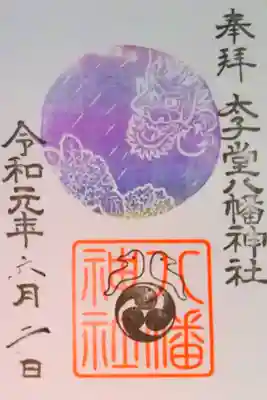 奉拝
太子堂八幡神社
八幡
神社
令和元年六月二日